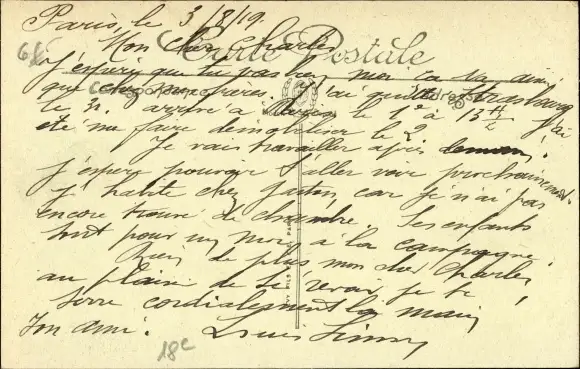 Paris, le 3/8/19.
Mon cher Charles
Carte Postale
J'espère que tu vas
que chez J'ai quitté Strasbourg
Correspondance Adresse
le 31. arrivé à Paris le 1er à 13H J'ai
été me faire démobiliser le 2
Je vais travailler après demain.
J'espère pouvoir t'aller voir prochainement.
J'habite chez car je n'ai pas
encore trouvé de chambre. Ses enfants
sont pour un mois à la campagne.
Rien de plus mon cher Charles,
au plaisir de te revoir, je te
serre cordialement la main
Ton ami. Louis
6f
18c